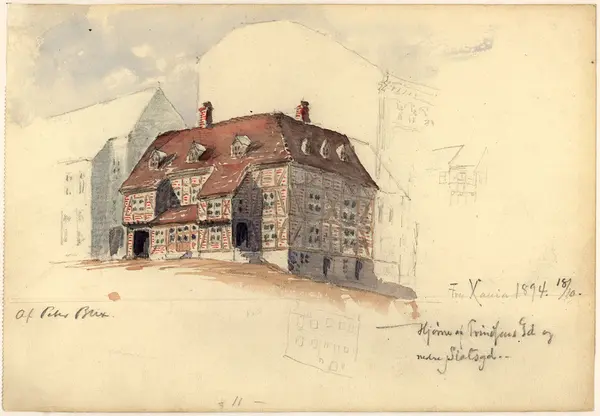 Fra Xania 1894. 18/10.
Af Peter Blix.
Hjørne af Prindsens Gd og
nedre Slotsgd.
11 —